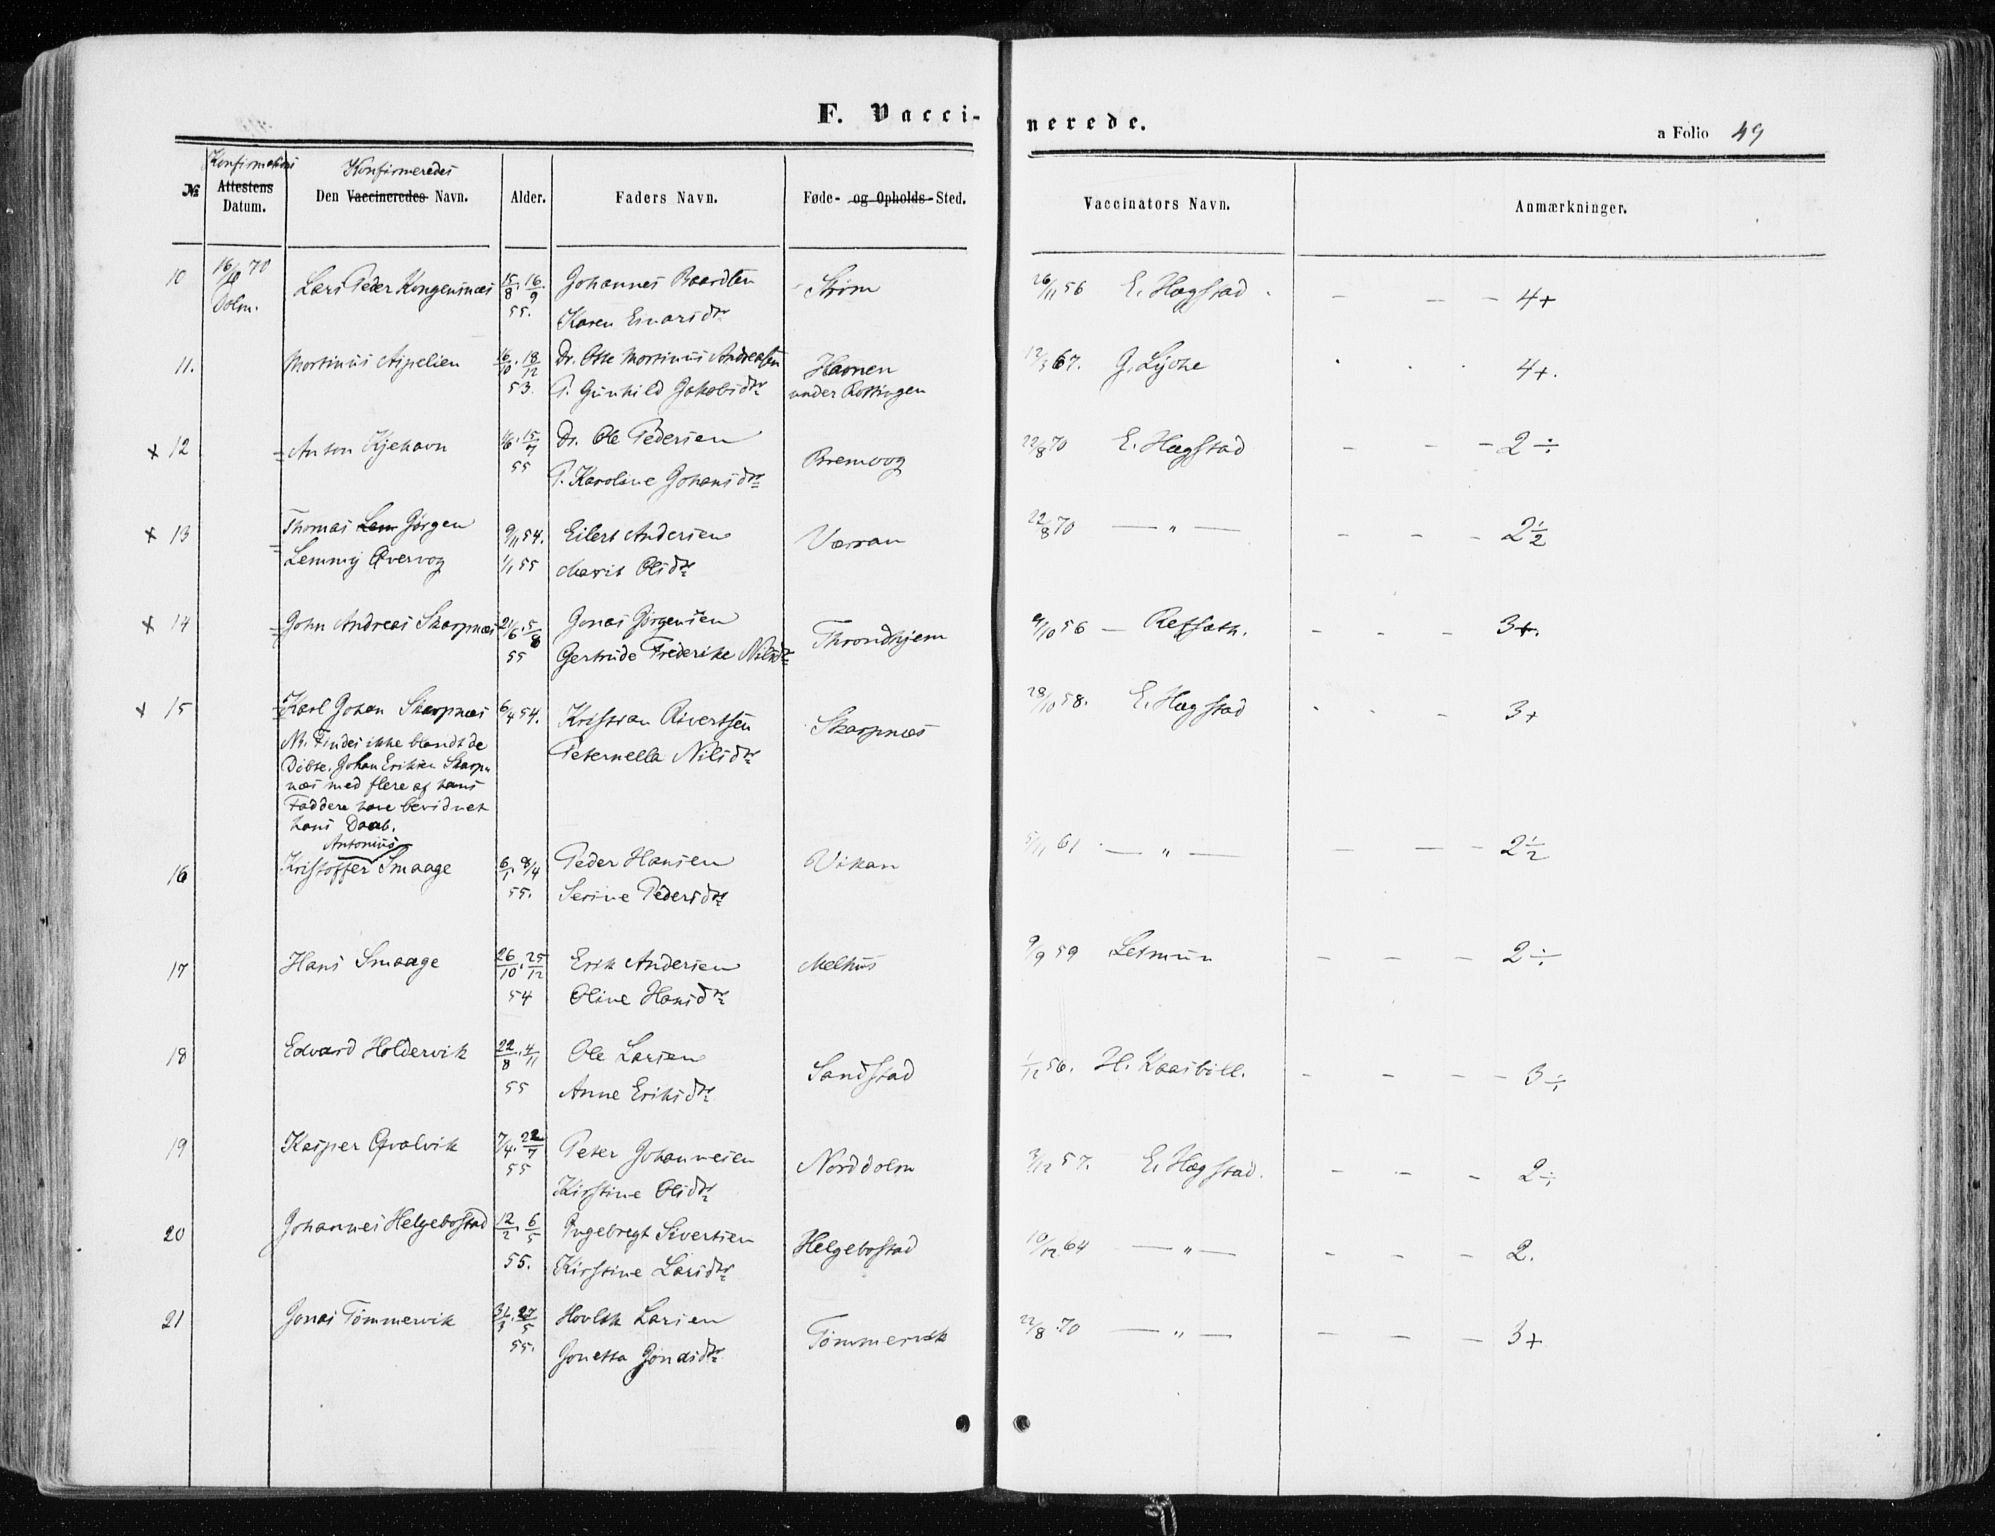 F. Vacci-
nerede.
a Folio 49
№
Attestens
Datum.
Konfirmeredes
Den Vaccineredes Navn.
Alder.
Faders Navn.
Føde- og Opholds-Sted.
Vaccinators Navn.
Anmærkninger.
10 16/10 70 Lars Peder Kongensnæs 15/8. 16/9 Johannes Baardsen Strøm 26/11 56 E. Hagstad - - - 4+
Dolm. 55. Karen Einarsdtr
11. Martinus Aspelien 16/10. 18/12 Dr. Otte Martinus Andreassen Havnen 67. G. Lyche 4+.
53. P. Gunhild Jakobsdtr under Kottingen
x 12 Anton Kjehavn 15/7 Dr. Ole Pedersen Bremvog 22/8 70 E. Hagstad - - - 2 ÷
55 P. Karoline Johansdtr
x 13 Thomas Lem Jørgen 9/11 54. Eilert Andersen Værran 22/8 70 — " — - - - 2½
Lemmy Qvervog 1/1 55 Marit Olsdtr
x 14 John Andreas Skarpnæs 21/6. 5/8 Jonas Jørgensen Throndhjem 9/10 56 — Refsæth. - - - 3+.
55 Gertrude Frederike Nilsdtr
x 15 Karl Johan Skarpnæs 6/4 54. Kristian Sivertsen Skarpnæs 28/10 58. E. Hagstad 3+
Nb. Findes ikke blandt de Peternella Nilsdtr
Døbte. Johan Eriksen Skarp-
næs med flere af hans
Faddere have bevidnet
hans Daab.
Antonius
16 Kristoffer Smaage 6/1. 8/4 Peder Hansen Vikan 5/11 61 — " — - - - 2½
55. Serine Pedersdtr
17 Hans Smaage 26/10. 25/12 Erik Andersen Melhus 9/9 59 Letmun - - - 2÷
54 Oline Hansdtr
18 Edvard Holdervik 22/8. 4/11 Ole Larsen Sandstad 1/12 56. H. Kaasböll. - - - - 3÷
55 Anne Eriksdtr
19 Kasper Qvalvik 7/4. 22/7 Peter Johannesen Norddolm 3/12 57. E. Hagstad. - - - 2÷
55 Kirstine Olsdtr
20 Johannes Helgebostad 12/2. 6/5 Ingebregt Sivertsen Helgebostad 10/12 64 — " — - - - 2.
55. Kirstine Larsdtr
21 Jonas Tømmervik 31/3. 27/5 Larsen Tømmervik 22/8 70 — " — - - - 3+
55. Jonetta Jonasdtr